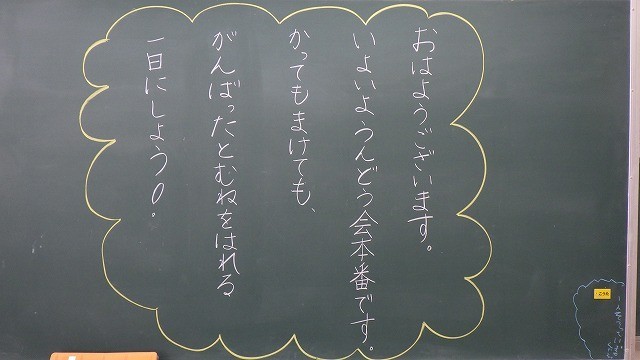 おはようございます。
いよいようんどう会本番です。
かってもまけても、
がんばったとむねをはれる
一日にしよう！